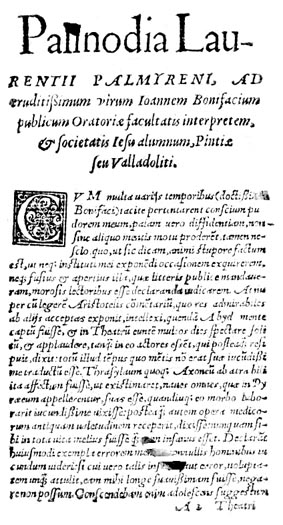 Palinodia Lau-
RENTII PALMYRENI, AD
eruditissimum virum Ioannem Bonifacium
publicum Oratoriæ facultatis interpretem,
& societatis Iesu alumnum, Pintiæ
seu Valladoliti.
CVM multa varijs temporibus (doctissime
Bonifaci) tacite pertentarent conscium pu
dorem meum, palam vero diffidentiam, non
sine aliquo mentis motu proderet, tamen ne-
scio quo, ut sic dicam, animi stupore factum
est, ut neq; instituti mei exponedi occasionem exquirerem,
neq; fusius & apertius illis, quæ litteris publice mandaue-
ram, morosis lectoribus esse declaranda iudicarem. At nu
per cũ legerẽ Aristotelis cõmẽtariũ, quo res admirabiles
ab alijs acceptas exponit, intellexi, quendã Abyd mente
captũ fuisse, & in Theatrũ euntẽ multos dies spectare soli
tũ, & applaudere, tanq̃ in eo actores essẽt, qui postea resi
puit, dixit totũ illud tẽpus quo mẽtis nõ erat sue iucũdissi
me traductũ esse. Thrasylum quoq; Axoneũ ab atra bili
ita affectũ fuisse, ut existimaret, naues omnes, quæ in Py
ræeum appellerentur, suas esse, quandiuq; eo morbo labo-
rarit iucundissime vixisse: postea q̃ autem opera medico-
rum antiquam valetudinem receperit, dixisse nunquam si-
bi in tota vita melius fuisse q̃ cum insanus esset. Declarat
huiusmodi exemplo errorem nonnullis hominibus in
cundum videri: si cui vero talis insit error, volupta-
tem inq̃ attulit, eam mihi longe suauissimam fuisse, nega-
re non possum. Conscendebam enim adolescens suggestum
A 2 Theatri